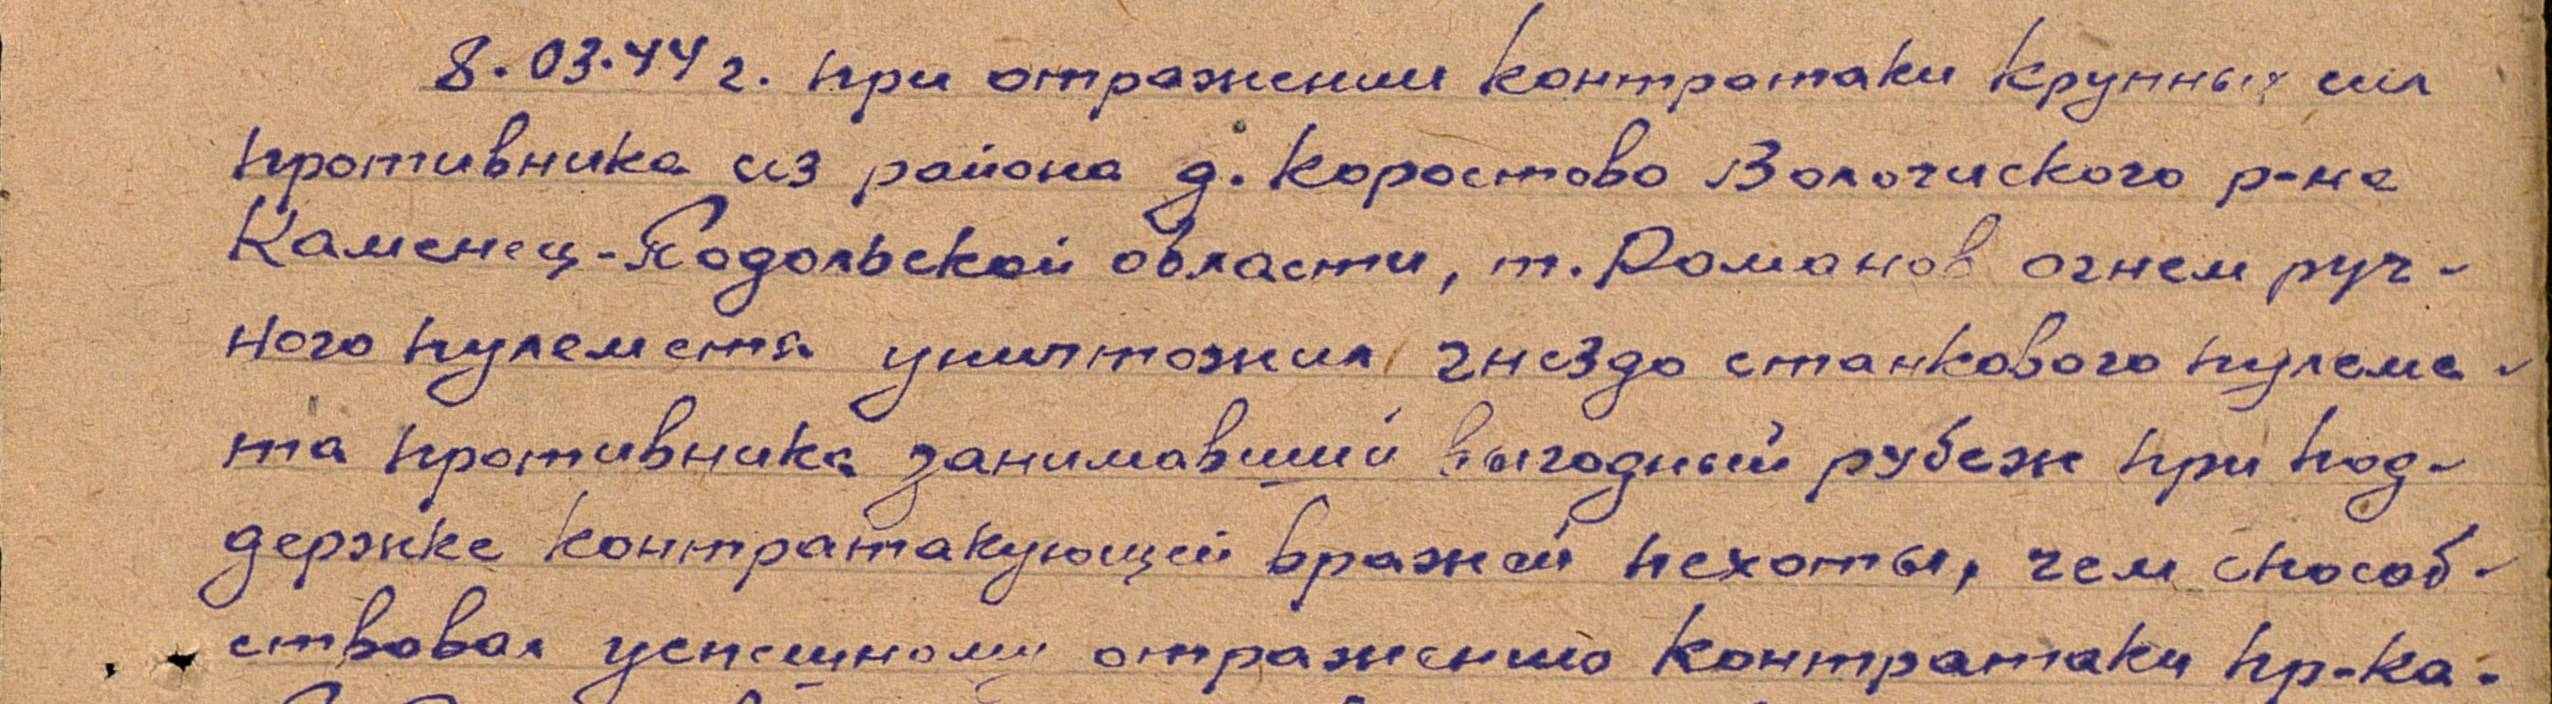 8.03.44 г. при отражении контратаки крупных сил
противника из района д. Коростово Волочиского р-на
Каменец-Подольской области, т. Романов огнем руч-
ного пулемета уничтожил гнездо станкового пулеме-
та противника занимавший выгодный рубеж при под-
держке контратакующей вражей пехоты, чем способ-
ствовал успешному отражению контратаки пр-ка.